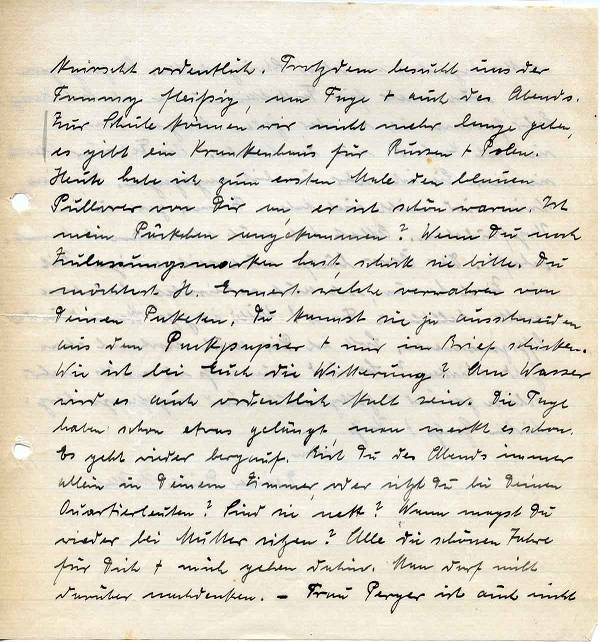 knirscht ordentlich. Trotzdem besucht uns der
Tommy fleißig, am Tage + auch des Abends.
Zur Schule können wir nicht mehr lange gehen,
es gibt ein Krankenhaus für Russen + Polen.
Heute habe ich zum ersten Male den blauen
Pullover von Dir an, er ist schön warm. Ist
mein Päckchen angekommen? Wenn Du noch
Zulassungsmarken hast, schick sie bitte. Du
möchtest H. Ermert welche verwahren von
Deinen Paketen. Du kannst sie ja ausschneiden
aus dem Packpapier + nur im Brief schicken.
Wie ist bei Euch die Witterung? Am Wasser
wird es auch ordentlich kalt sein. Die Tage
haben schon etwas gelängt, man merkt es schon.
Es geht wieder bergauf. Bist Du des Abends immer
allein in Deinem Zimmer, oder sitzt Du bei Deinen
Quartierleuten? Sind sie nett? Wann magst Du
wieder bei Mutter sitzen? Alle die schönen Jahre
für Dich + mich gehen dahin. Man darf nicht
darüber nachdenken. – Frau Perger ist auch nicht